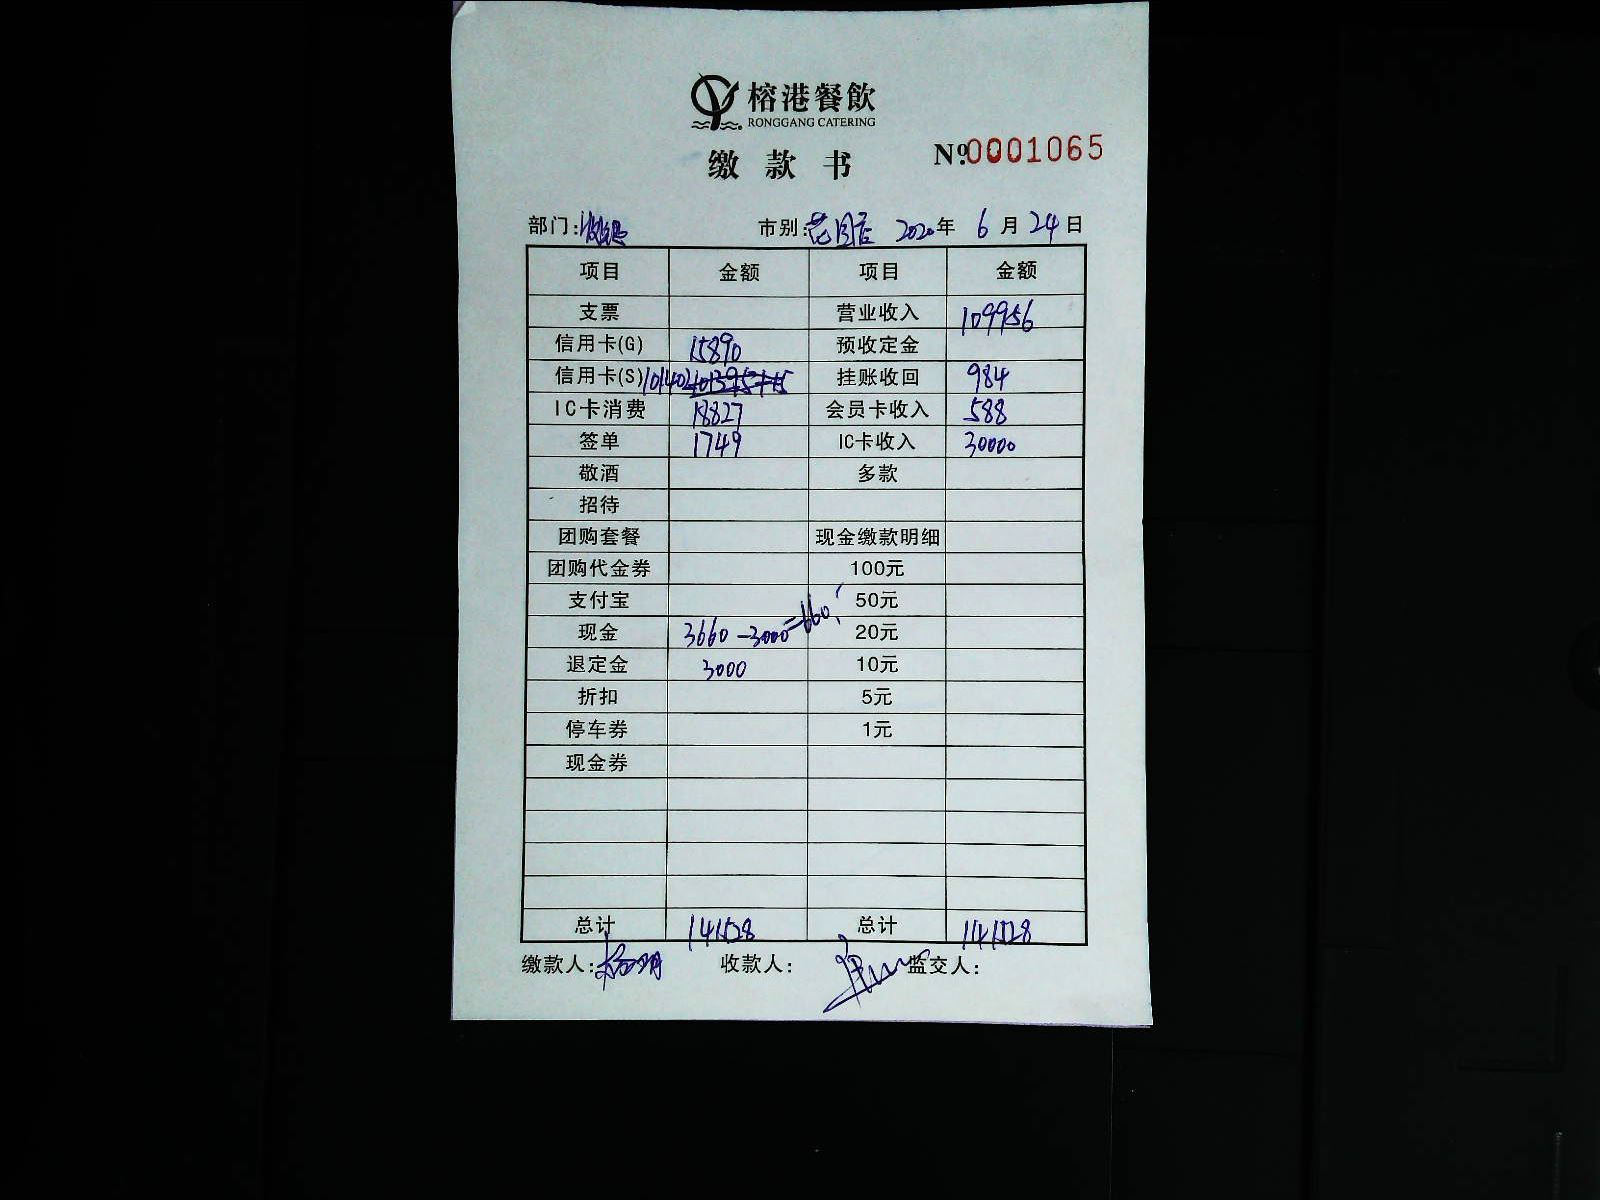 榕港餐飲
RONGGANG CATERING
缴款书 №0001065
部门:收银 市别:花园店 2020年 6月24日
项目 金额 项目 金额
支票 营业收入 109956
信用卡(G) 15890 预收定金
信用卡(S) 101402 挂账收回 984
IC卡消费 18827 会员卡收入 588
签单 1749 IC卡收入 30000
敬酒 多款
招待
团购套餐 现金缴款明细
团购代金券 100元
支付宝 50元
现金 3660-3000=660 20元
退定金 3000 10元
折扣 5元
停车券 1元
现金券
总计 141528 总计 141528
缴款人: 收款人: 监交人: